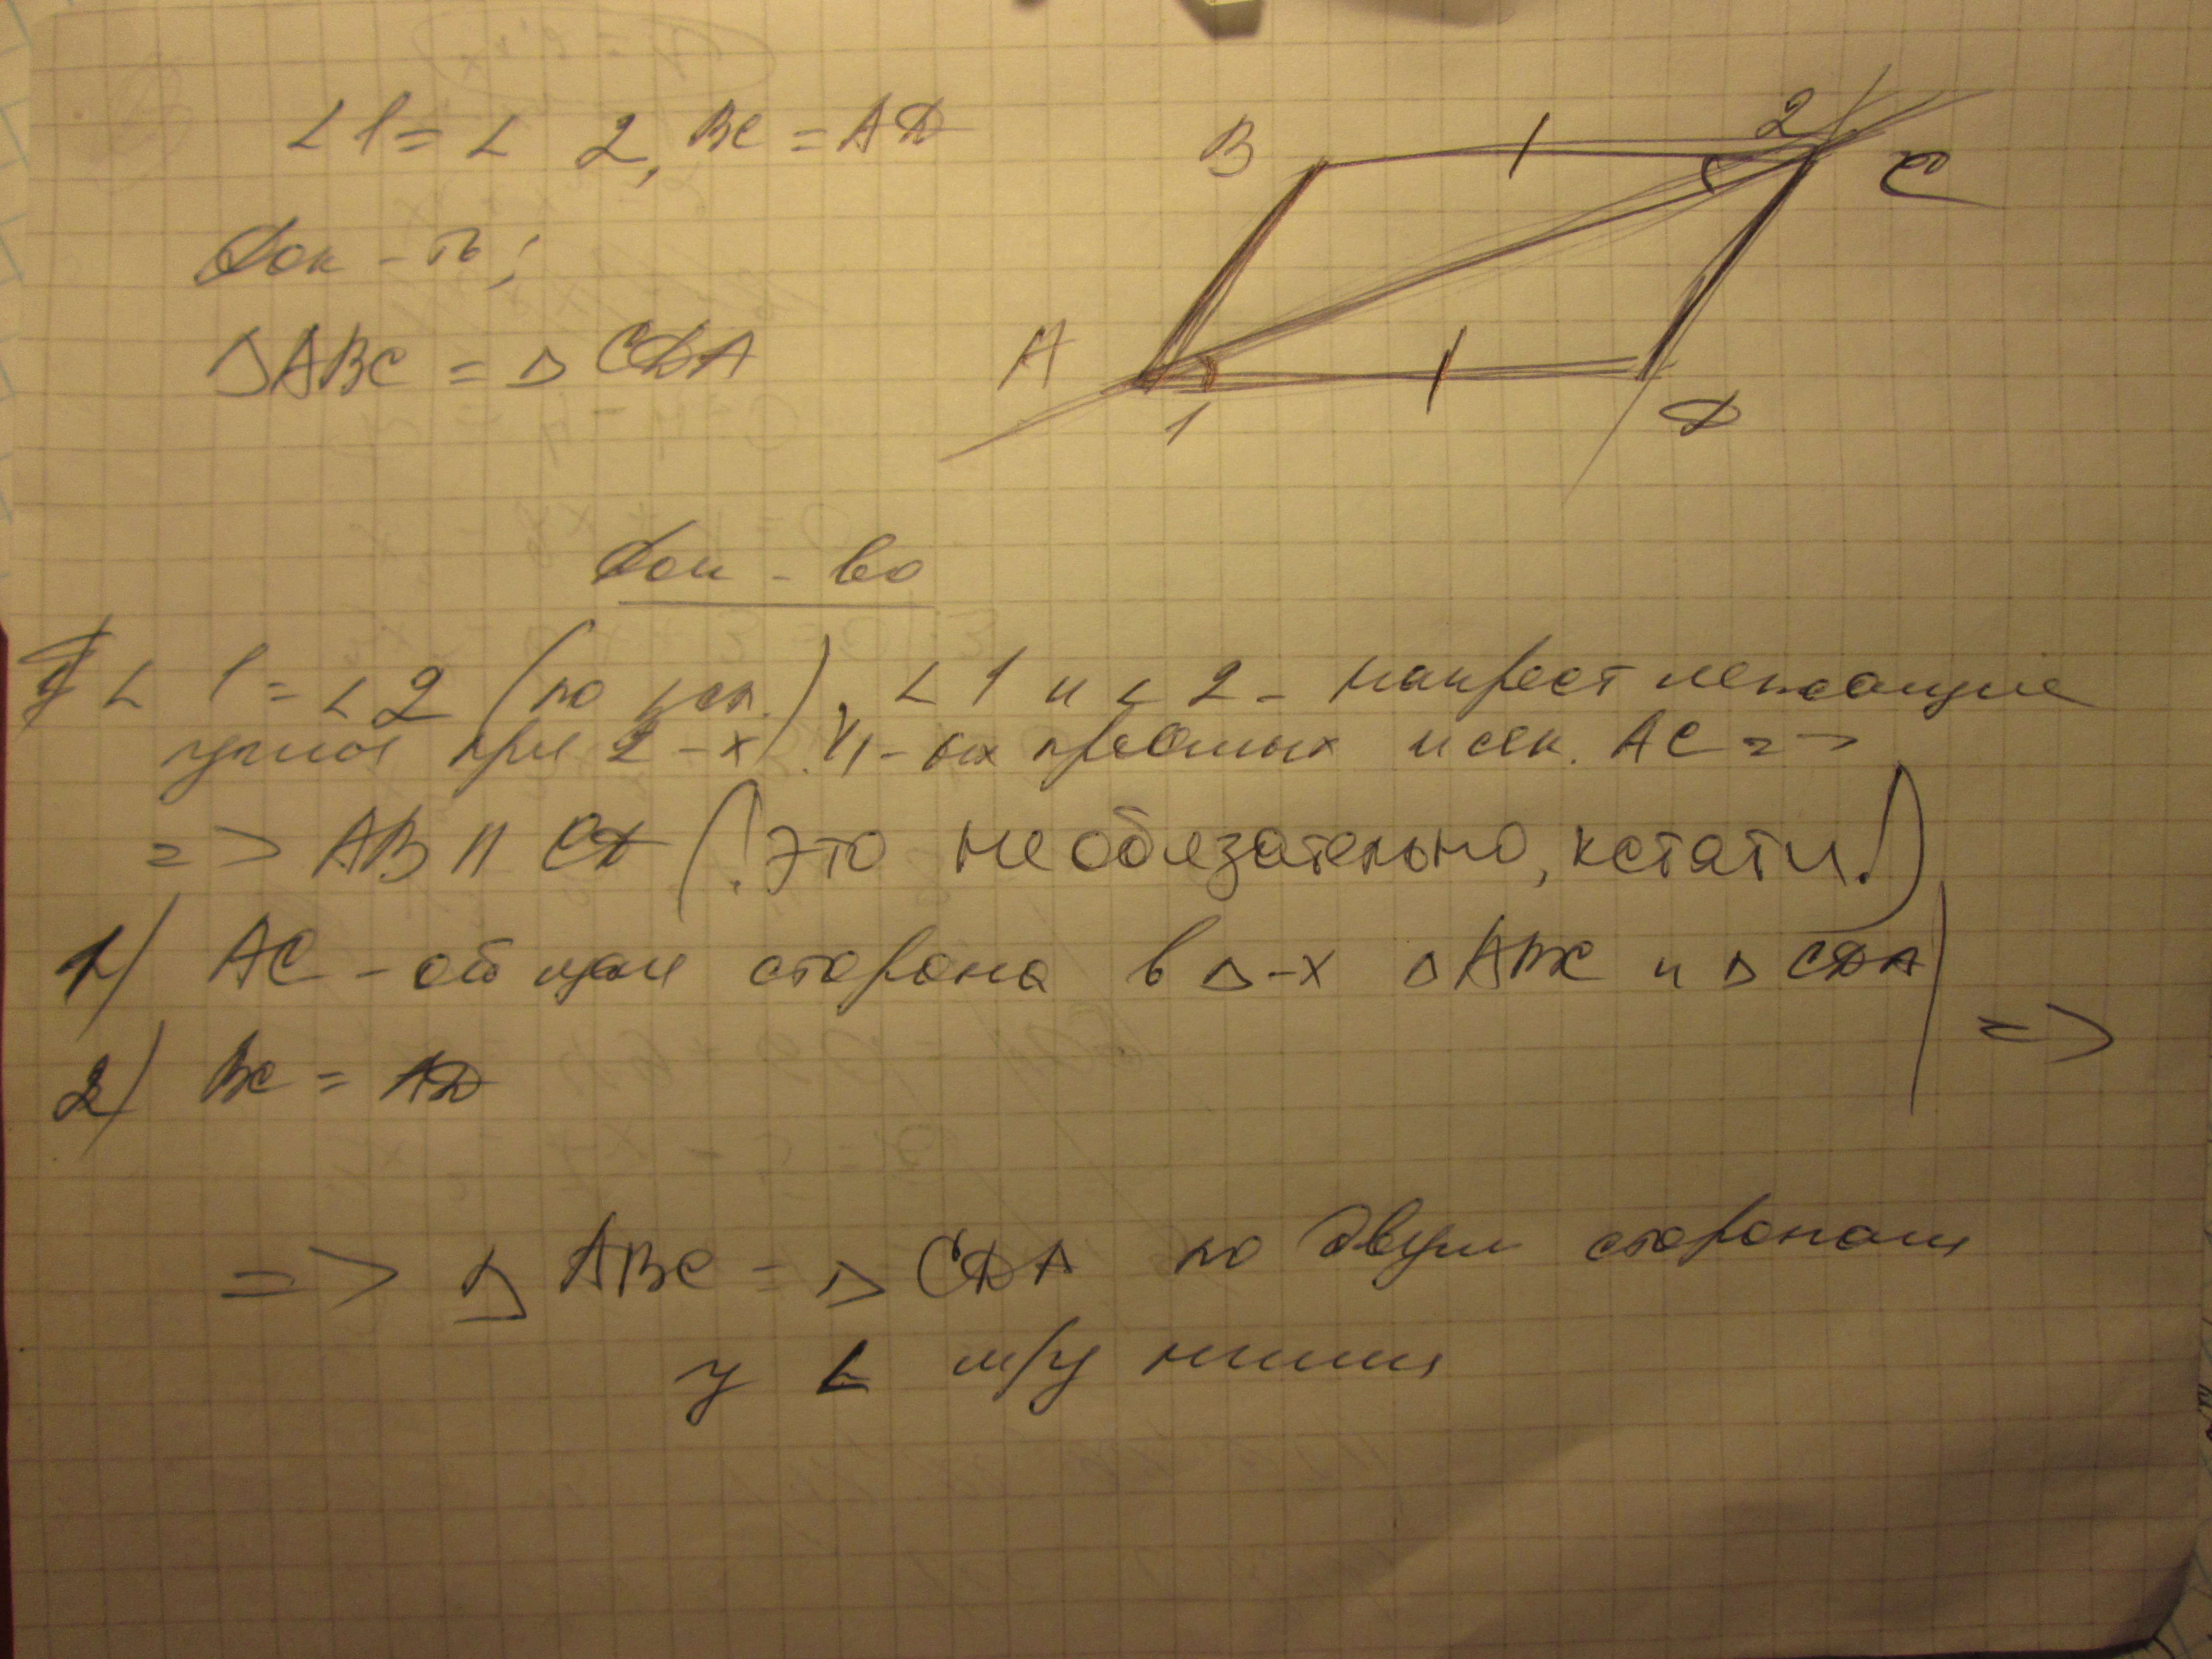 ∠1 = ∠2, BC = AD
Док-ть:
△ABC = △CDA
B
2
C
A
1
D
Док-во
∠1 = ∠2 (по усл.), ∠1 и ∠2 - накрест лежащие
углы при 2-х ||-ых прямых и сек. AC =>
=> AB || CD (!это необязательно, кстати!)
1) AC - общая сторона в △-х △ABC и △CDA
2) BC = AD
=>
=> △ABC = △CDA по двум сторонам
у ∠ м/у ними